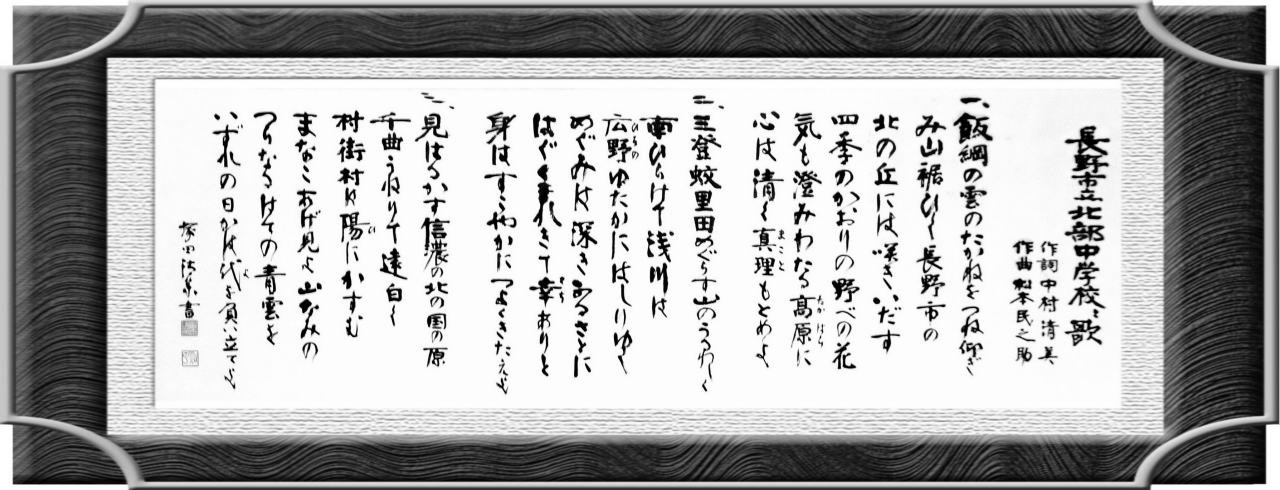 長野市立北部中学校々歌
作詞 中村清美
作曲 松本民之助
一、飯綱の雲のたかねをつね仰ぎ
み山裾ひく長野市の
北の丘には咲きいだす
四季のかおりの野べの花
気も澄みわたる高原に
たかはら
心は清く真理もとめよ
まこと
二、三登蚊里田めぐらす山のうるわしく
南ひらけて浅川は
広野ゆたかにはしりゆく
ひろの
めぐみは深きふるさとに
はぐくまれきて幸ありと
さち
身はすこやかにつよくきたえよ
三、見はるかす信濃の北の国の原
千曲うねりて遠白く
村街村は陽にかすむ
ひ
まなこあげ見よ山なみの
つらなるはての青雲を
いずれの日かは代を負い立てよ
よ
書